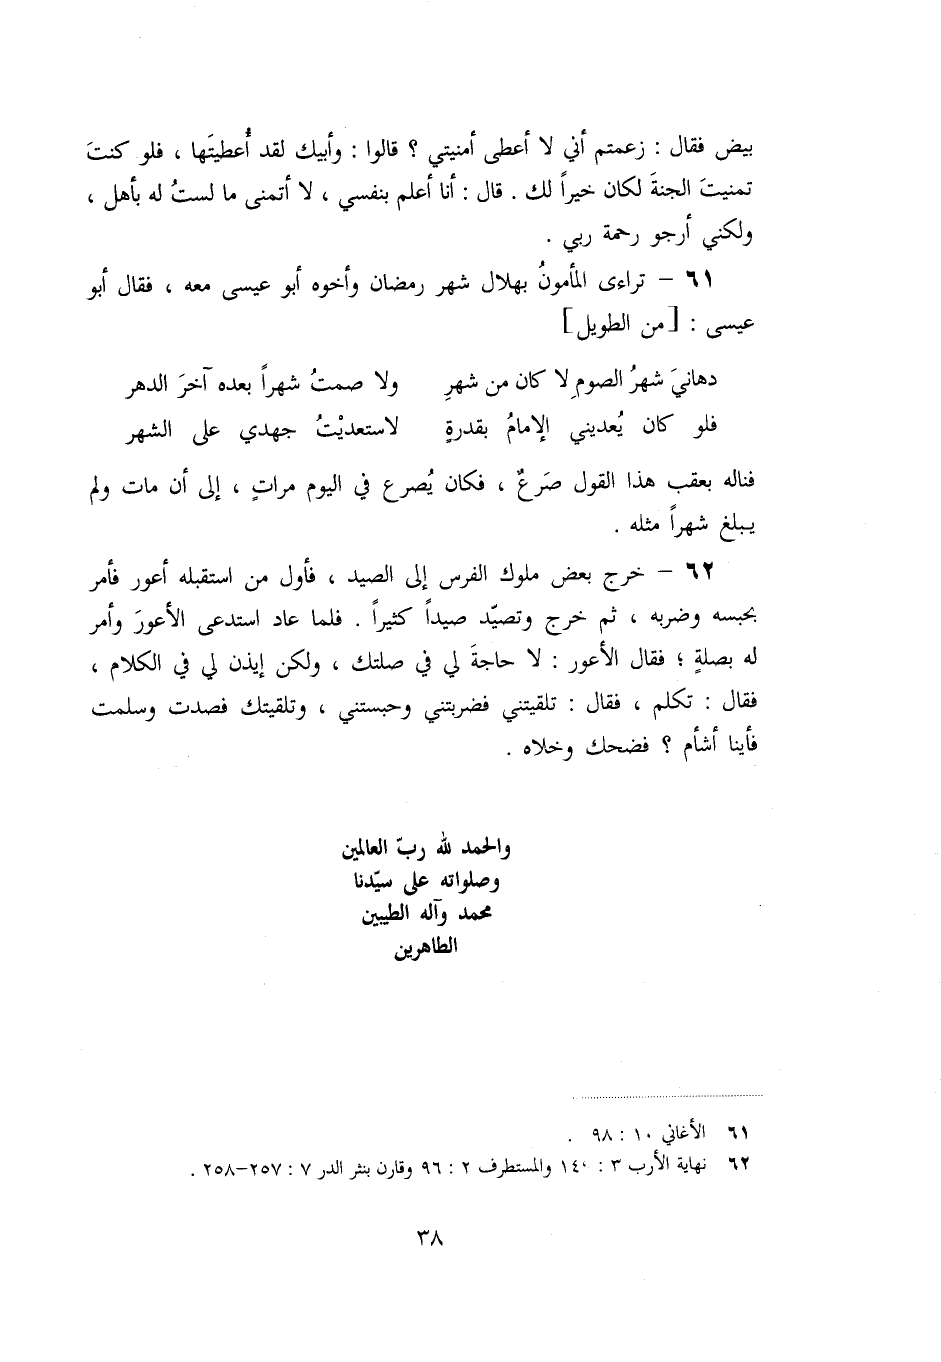 بيض فقال : زعمتم أني لا أعطى أمنيتي ؟ قالوا : وأبيك لقد أُعطيتَها ، فلو كنتَ
تمنيتَ الجنةَ لكان خيراً لك . قال : أنا أعلم بنفسي ، لا أتمنى ما لستُ له بأهل ،
ولكني أرجو رحمة ربي .
٦١ - تراءى المأمونُ بهلال شهر رمضان وأخوه أبو عيسى معه ، فقال أبو
عيسى : [من الطويل]
دهانيَ شهرُ الصومِ لا كان من شهرِ ولا صمتُ شهراً بعده آخرَ الدهر
فلو كان يُعديني الإمامُ بقدرةٍ لاستعديْتُ جهدي على الشهر
فناله بعقب هذا القول صَرعٌ ، فكان يُصرع في اليوم مراتٍ ، إلى أن مات ولم
يبلغ شهراً مثله .
٦٢ - خرج بعض ملوك الفرس إلى الصيد ، فأول من استقبله أعور فأمر
بحبسه وضربه ، ثم خرج وتصيّد صيداً كثيراً . فلما عاد استدعى الأعورَ وأمر
له بصلةٍ ؛ فقال الأعور : لا حاجةَ لي في صلتك ، ولكن إيذن لي في الكلام ،
فقال : تكلم ، فقال : تلقيتني فضربتني وحبستني ، وتلقيتك فصدت وسلمت
فأينا أشأم ؟ فضحك وخلاه .
والحمد لله ربّ العالمين
وصلواته على سيّدنا
محمد وآله الطيبين
الطاهرين
٦١ الأغاني ١٠ : ٩٨ .
٦٢ نهاية الأرب ٣ : ١٤٠ والمستطرف ٢ : ٩٦ وقارن بنثر الدر ٧ : ٢٥٧-٢٥٨ .
٣٨